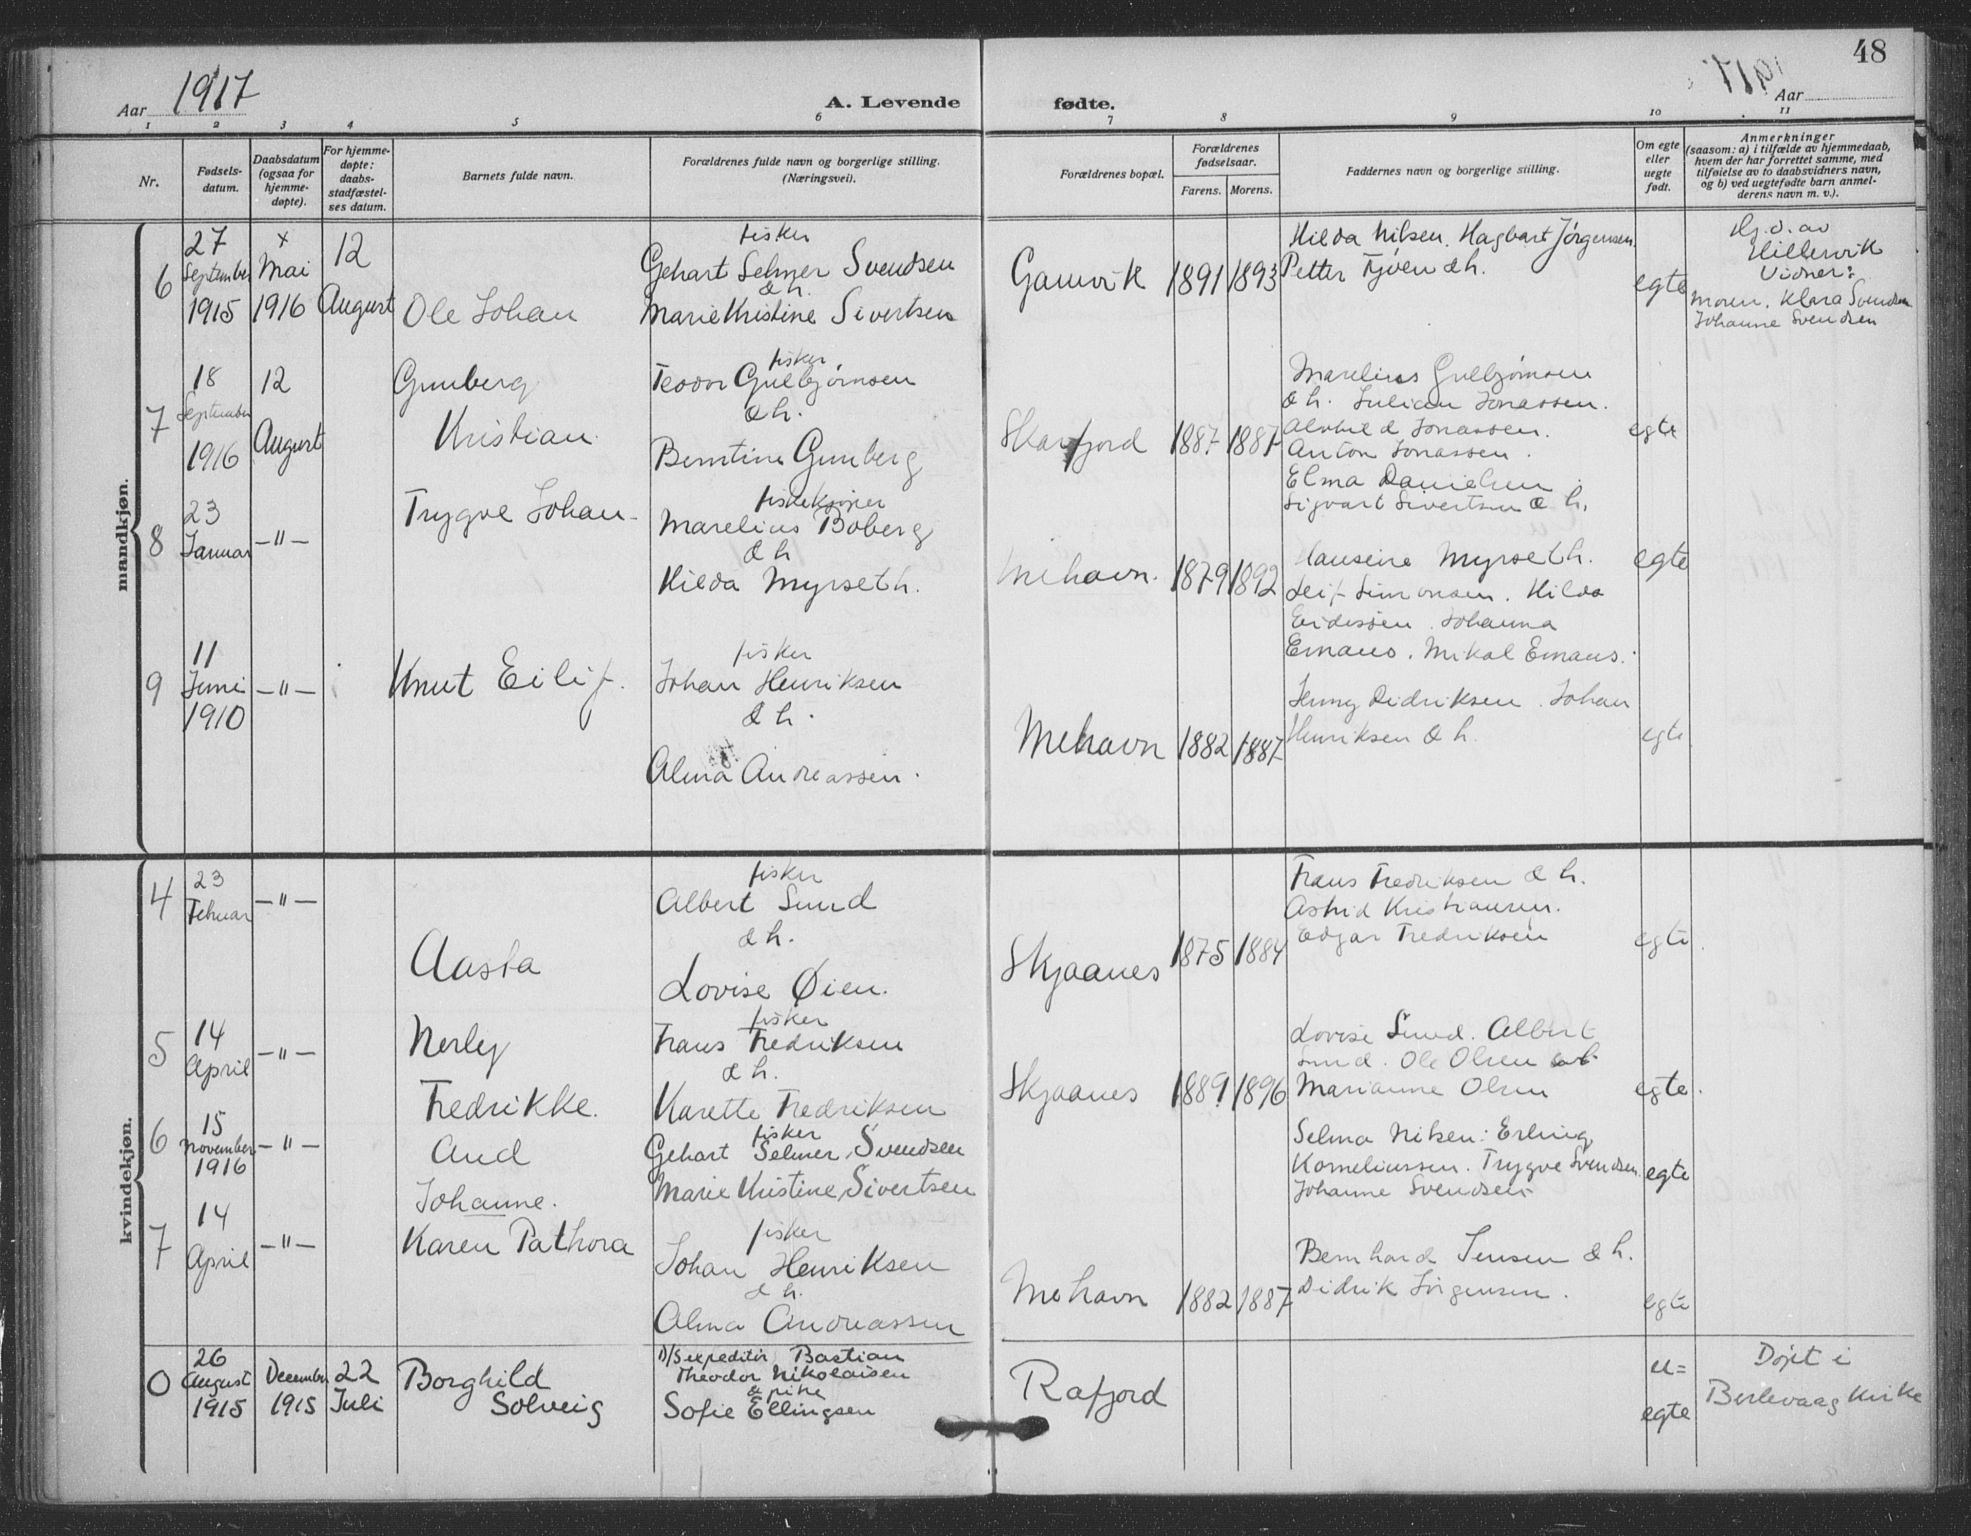 48
Aar 1917
A. Levende fødte.
Aar
1 2 3 4 5 6 7 8 9 10 11
Nr.
Fødsels-
datum.
Daabsdatum
(ogsaa for
hjemme-
døpte).
For hjemme-
døpte:
daabs-
stadfæstel-
ses datum.
Barnets fulde navn.
Forældrenes fulde navn og borgerlige stilling.
(Næringsvei).
Forældrenes bopæl.
Forældrenes
fødselsaar.
Farens. Morens.
Faddernes navn og borgerlige stilling.
Om egte
eller
uegte
født.
Anmerkninger
(saasom: a) i tilfælde av hjemmedaab,
hvem der har forrettet samme, med
tilføielse av to daabsvidners navn,
og b) ved uegtefødte barn anmel-
derens navn m. v.).
mandkjøn.
6
27
September
1915
x
Mai
1916
12
August
Ole Johan
fisker
Gehart Selmer Svendsen
& h.
Marie Kristine Sivertsen
Gamvik
1891 1893
Hilda Nilsen. Hagbart Jörgensen.
Petter Fjöen & h.
egte
Hj. d. av
Hillervik
Vidner:
moren. Klara Svendsen
Johanne Svendsen
7
18
September
1916
12
August
Gunberg
Kristian.
fisker
Teodor Gulbjørnsen
& h.
Berntine Gunberg
Skarfjord
1887 1887
Marelius Gulbjørnsen
& h. Julian Jonassen.
Alvhild Jonassen.
Anton Jonassen.
Elma Danielsen
Sigvart Sivertsen & h.
egte
8
23
Januar
—"—
Trygve Johan
Marelius Boberg
& h
Hilda Myrseth.
Mehavn.
1879 1892
Hansine Myrseth.
Leif Simonsen. Hilda
Johanna
Emaus. Mikal Emaus.
egte
9
11
Juni
1910
—"—
Knut Eilif.
fisker
Johan Henriksen
& h.
Alma Andreassen.
Mehavn
1882 1887
Jenny Didriksen. Johan
Henriksen & h.
egte
kvindekjøn.
4
23
Februar
—"—
Aasta
fisker
Albert Sund
& h.
Lovise Øien.
Skjaanes
1875 1884
Frans Fredriksen & h.
Astrid Kristiansen.
Edgar Fredriksen
egte
5
14
April
—"—
Nerly
Fredrikke.
fisker
Frans Fredriksen
& h.
Karette Fredriksen
Skjaanes
1889 1896
Lovise Sund. Albert
Sund. Ole Olsen
Marianne Olsen
egte.
6
15
November
1916
—"—
Aud
Johanne.
fisker
Gehart Selmer Svendsen
Marie Kristine Sivertsen
Selma Nilsen. Erling
Korneliussen. Trygve Svendsen.
Johanne Svendsen
egte
7
14
April
—"—
Karen Pathora
fisker
Johan Henriksen
& h.
Alma Andreassen
Mehavn
1882 1887
Bernhard Jensen & h.
Didrik Jörgensen.
egte
0
26
August
1915
December
1915
22
Juli
Borghild
Solveig
D/S expeditör Bastian
Theodor Nikolaisen
& pike
Sofie Ellingsen
Rafjord
u=
egte
Döpt i
Berlevaag Kirke